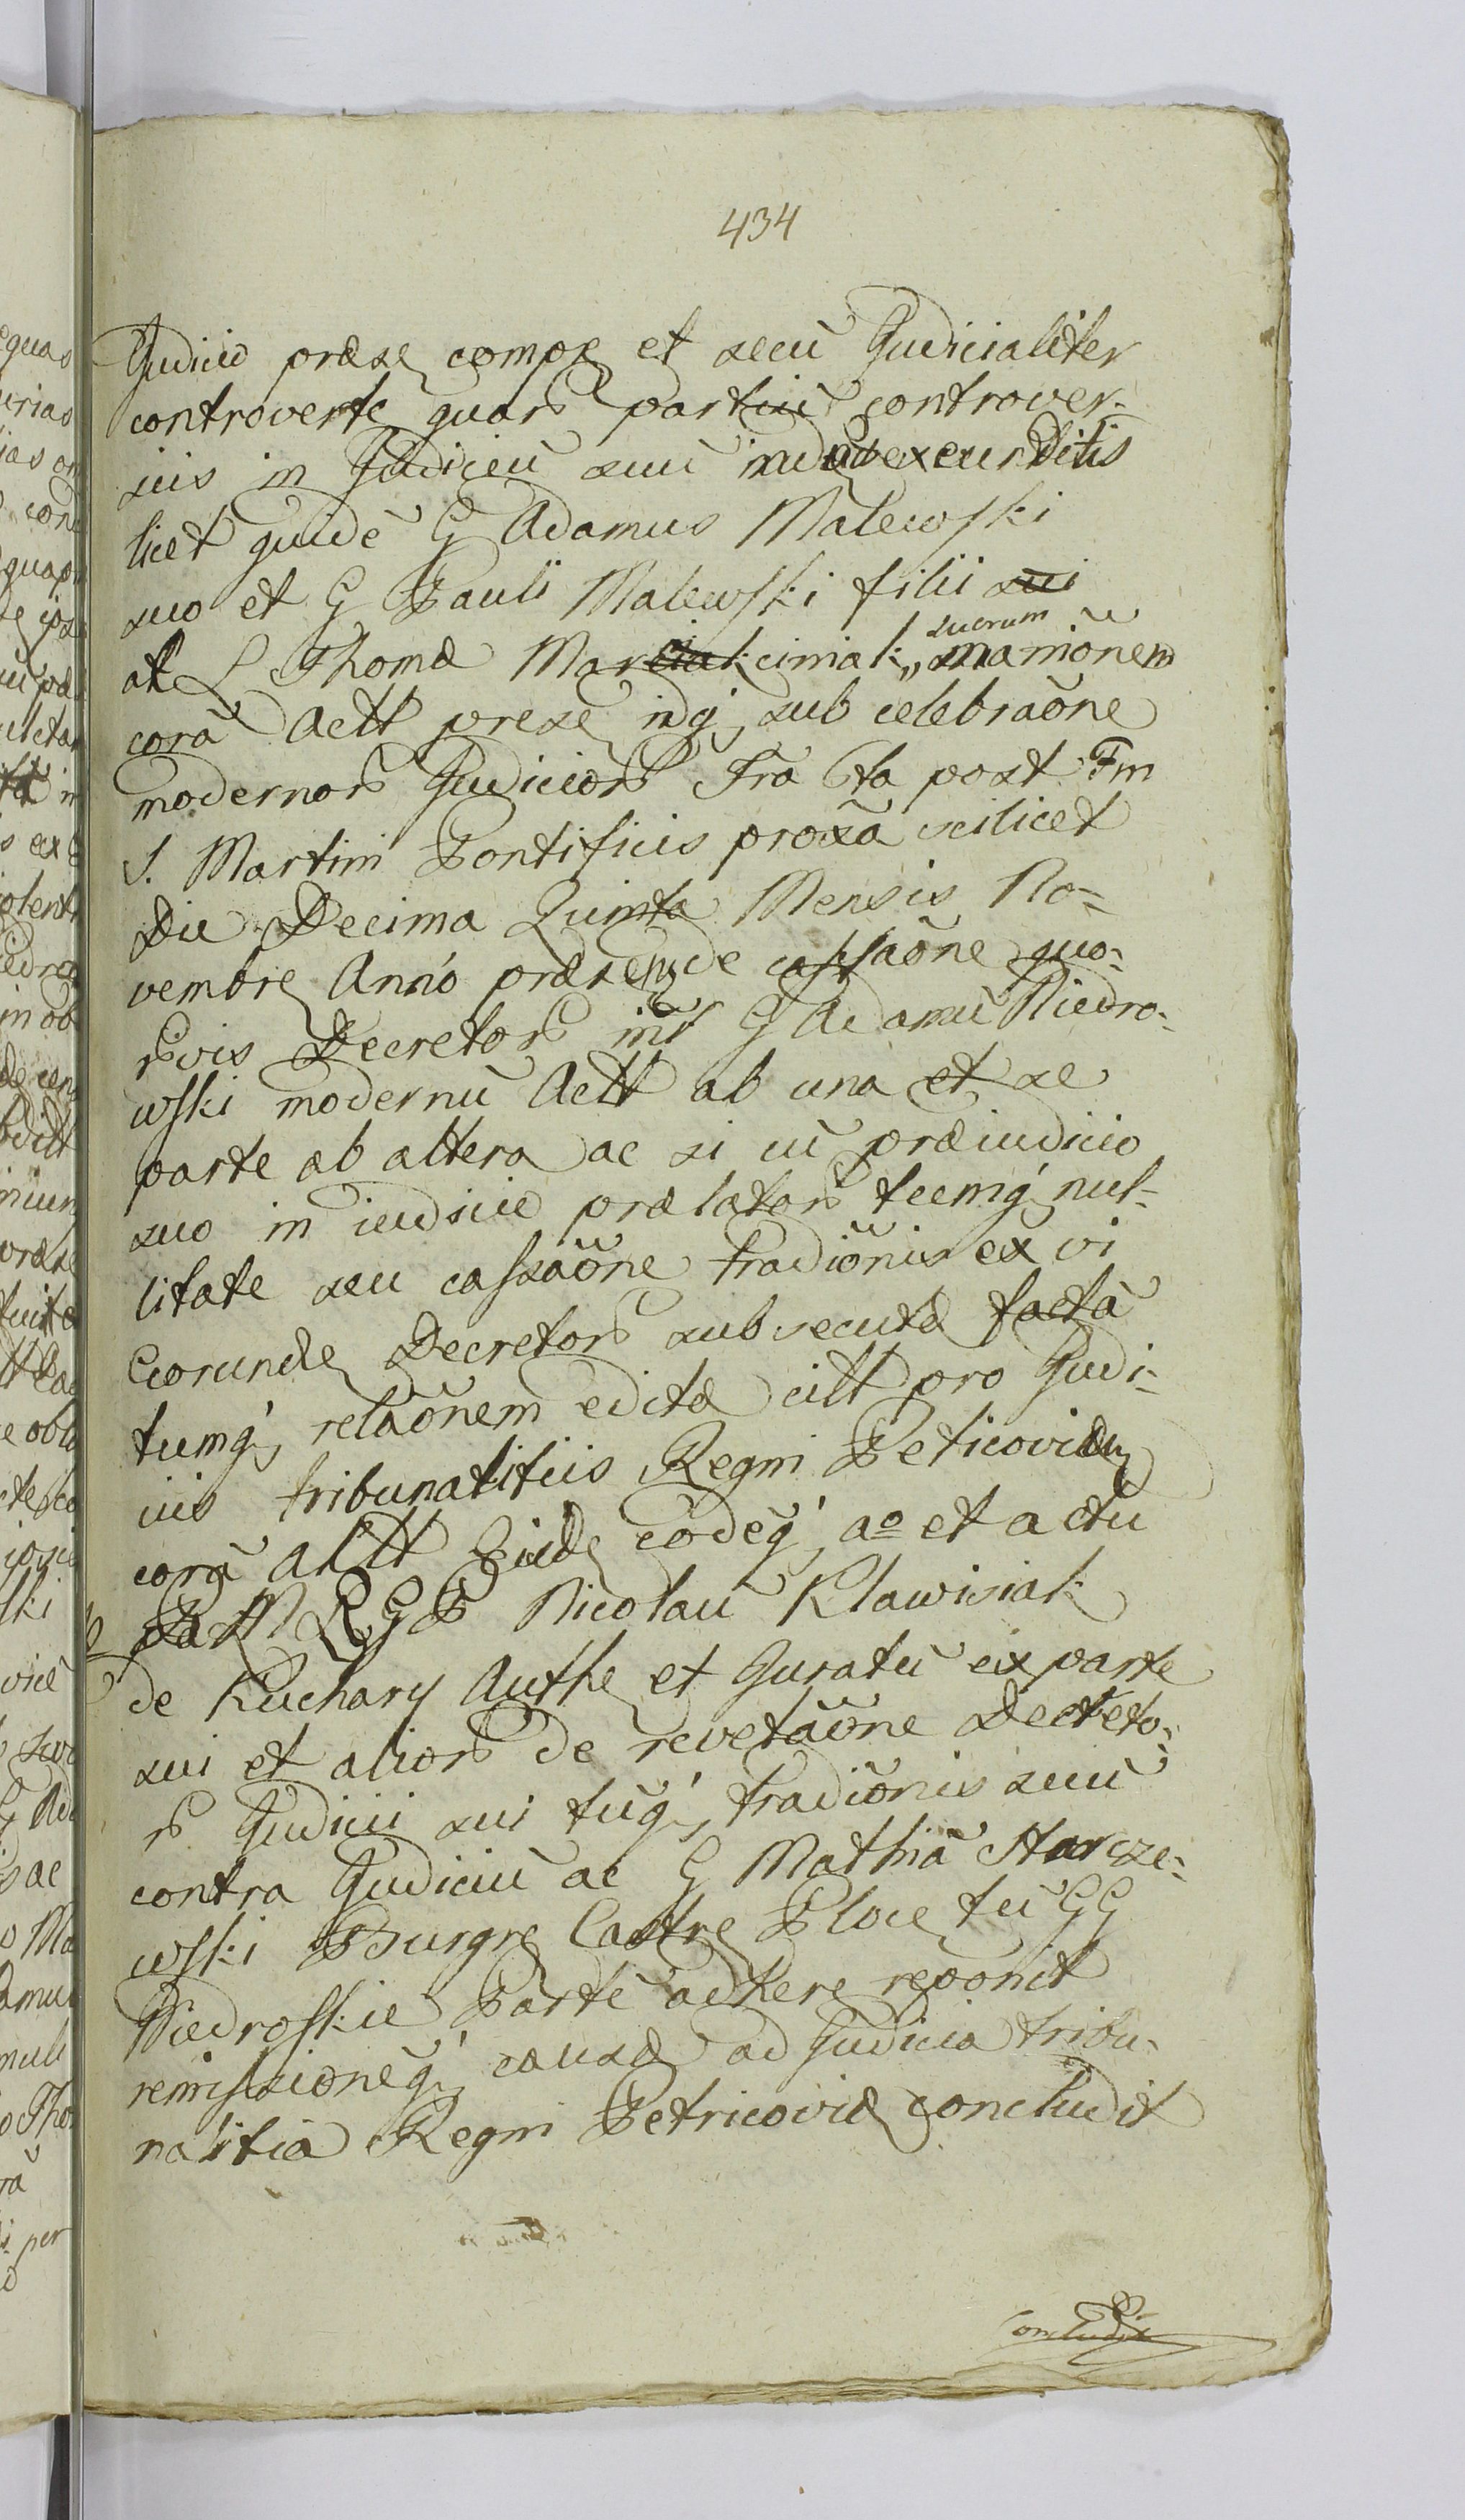 434
Judicio præse compe et secū Judicialiter
controverte quarū partiū controver-
siis in Judiciū suū excurditis
licet quidē G Adamus Malewski
suo et G Pauli Malewski filii sui
at L Thomæ Marciak cimak „ suorum manīonem
corā Actt prese inq, sub celebraōne
modernorū Judiciorū Fra 6ta post Fm
S. Martini Pontificis proxā scilicet
Die Decima Quinta Mensis No-
vembre Anno præsen de cassaōne quo-
rvis Decretorū int G Adamū Niedro-
wski modernū Actt ab una et se
parte ab altera ac si cū præiudicio
suo in iudicie prælatorū tecmq nul-
litate seu cassaōne tradiōnis ex vi
Eorunde Decretorū subsecutæ factā
tumq, relaōnem edita citt pro Judi-
ciis tribunalitiis Regni Peticoviæ
corā Actt Eiude eodēq, ao et actu
Pa M R G P Nicolaū Klawisiak
de Kuchary Authe et Juratū ex parte
sui et aliorū de revetaōne Decreto-
rū Judicii sui tūq, tradiōnis suū
contra Judiciū ac G Mathiā Harcze-
wski Burgre Castre Ploce tū GG
Niedroskie Partē adhere reponit
remissionēq, causæ ad Judicia tribu-
nalitia Regni Petricoviæ concludit
Concludit